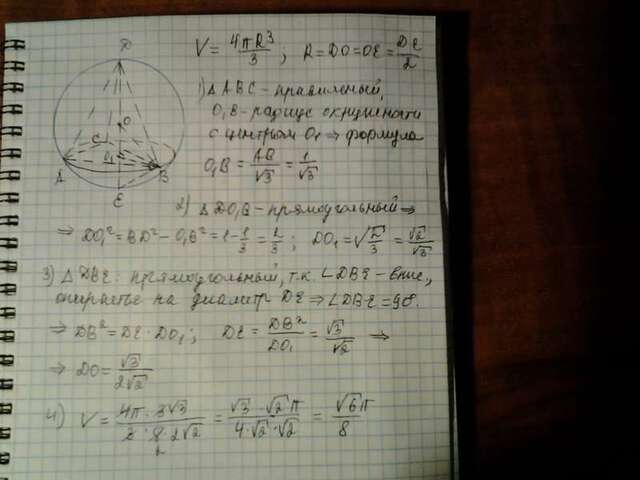 D
V = 4πR³/3 ; R = DO = OE = DE/2
1) Δ ABC - правильный,
O₁B - радиус окружности
с центром O₁ ⇒ формула
O₁B = AB/√3 = 1/√3
O
C
O₁
A
B
E
2) Δ DO₁B - прямоугольный ⇒
⇒ DO₁² = BD² - O₁B² = 1 - 1/3 = 2/3 ; DO₁ = √2/3 = √2/√3
3) Δ DBE: прямоугольный, т.к. ∠DBE - впис.,
опирается на диаметр DE ⇒ ∠DBE = 90°.
⇒ DB² = DE · DO₁ ; DE = DB²/DO₁ = √3/√2 ⇒
⇒ DO = √3/2√2
4) V = 4π · 3√3/3 · 8 · 2√2 = √3 · √2 π/4 · √2 · √2 = √6 π/8
2